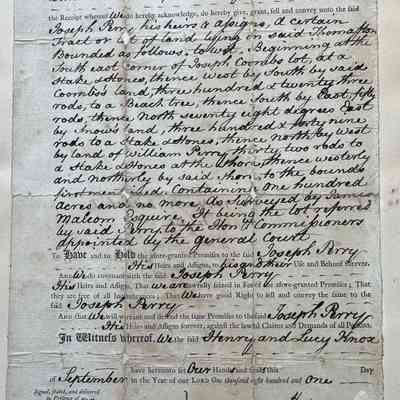 the Receipt whereof We do hereby acknowledge, do hereby give, grant, sell and convey unto the said
Joseph Perry his heirs & assigns, A certain
Tract or Lot of land lying in said Thomaston
Bounded as follows, to wit, Beginning at the
South east corner of Joseph Coombs lot, at a
Stake & Stones, thence West by South by said
Coombs's land, three hundred & twenty three
rods, to a Beach tree, thence South by East, fifty
rods, thence North seventy eight degrees East
by Snows land, three hundred & forty nine
rods to a Stake & Stones, thence North by West
by land of William Perry, thirty two rods to
a Stake & Stones at the shore, thence westerly
and northerly by said shore to the bounds
first Containing One hundred
acres and no more As Surveyed by
Malcom Esquire. It being the lot referred
by said Perry, to the Hon Commissioners
appointed by the general Court
To Have and to Hold the afore-granted Premises to the said Joseph Perry
His Heirs and Assigns, to his & their Use and Behoof forever.
And We do covenant with the said Joseph Perry
His Heirs and Assigns, That we are lawfully seized in Fee of the afore-granted Premises; That
they are free of all Incumbrances; That We have good Right to sell and convey the same to the
said Joseph Perry
And We will warrant and defend the same Premises to the said Joseph Perry
His Heirs and Assigns forever, against the lawful Claims and Demands of all Persons.
In Witness whereof, We the said Henry and Lucy Knox
have hereunto set Our Hands and Seals this Day
of September in the Year of our LORD One thousand eight hundred and one
Signed, sealed, and delivered